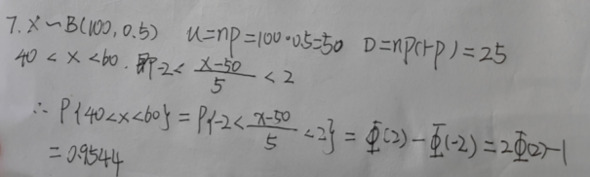 7. X~B(100, 0.5) u=np=100·0.5=50 D=np(1-p)=25
40<x<60. 即-2<\frac{x-50}{5}<2
∴ P{40<x<60}=P{-2<\frac{x-50}{5}<2}=Φ(2)-Φ(-2)=2Φ(2)-1
=0.9544